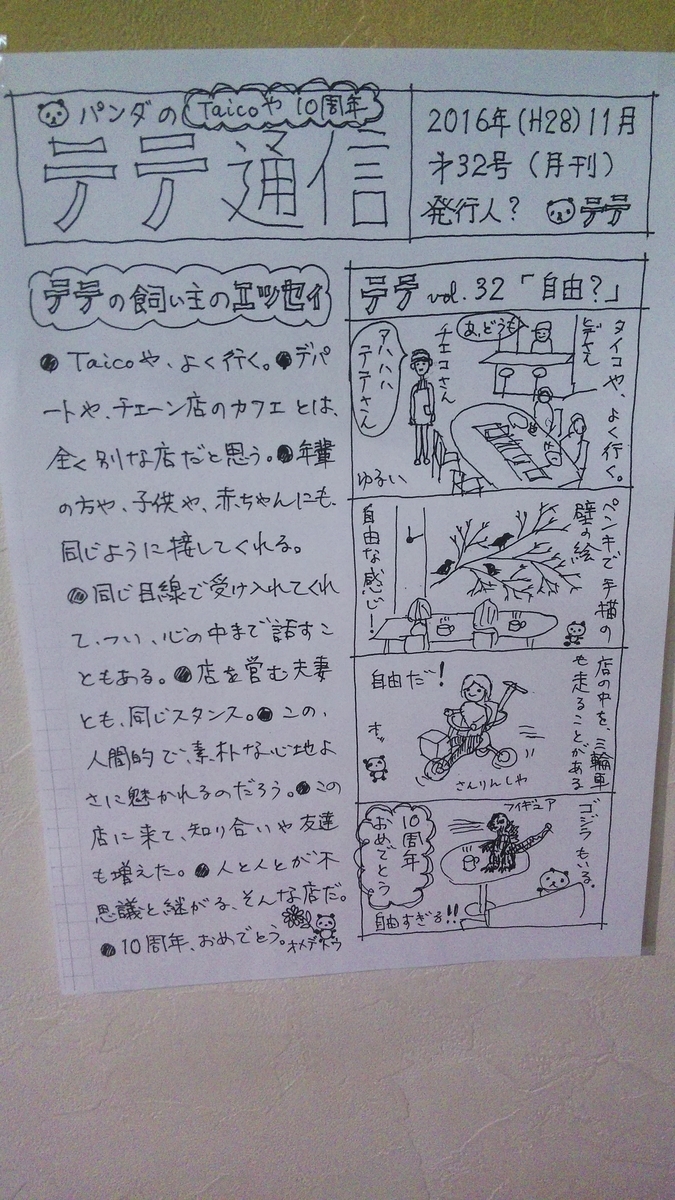 パンダの
Taicoや 10周年
テテ通信
2016年(H28)11月
才32号(月刊)
発行人? テテ
テテの飼い主のエッセイ
●Taicoや、よく行く。●デパ
ートや、チェーン店のカフェとは、
全く別な店だと思う。●年輩
の方や、子供や、赤ちゃんにも、
同じように接してくれる。
●同じ目線で受け入れてくれ
て、つい、心の中まで話すこ
ともある。●店を営む夫妻
とも、同じスタンス。●この、
人間的で、素朴な心地よ
さに魅かれるのだろう。●この
店に来て、知り合いや友達
も増えた。●人と人とが不
思議と継がる、そんな店だ。
●10周年、おめでとう。
オメデトウ
テテ vol.32「自由?」
タイコや、よく行く。
ヒデさん
あ、どうも
チエコさん
アハハハ
テテさん
ゆるい
ペンキで手描の
壁の絵
自由な感じ!
店の中を、三輪車
も走ることがある
自由だ!
オッ
さんりんしゃ
ゴジラもいる。
フィギュア
10周年
おめでとう
自由すぎる!!